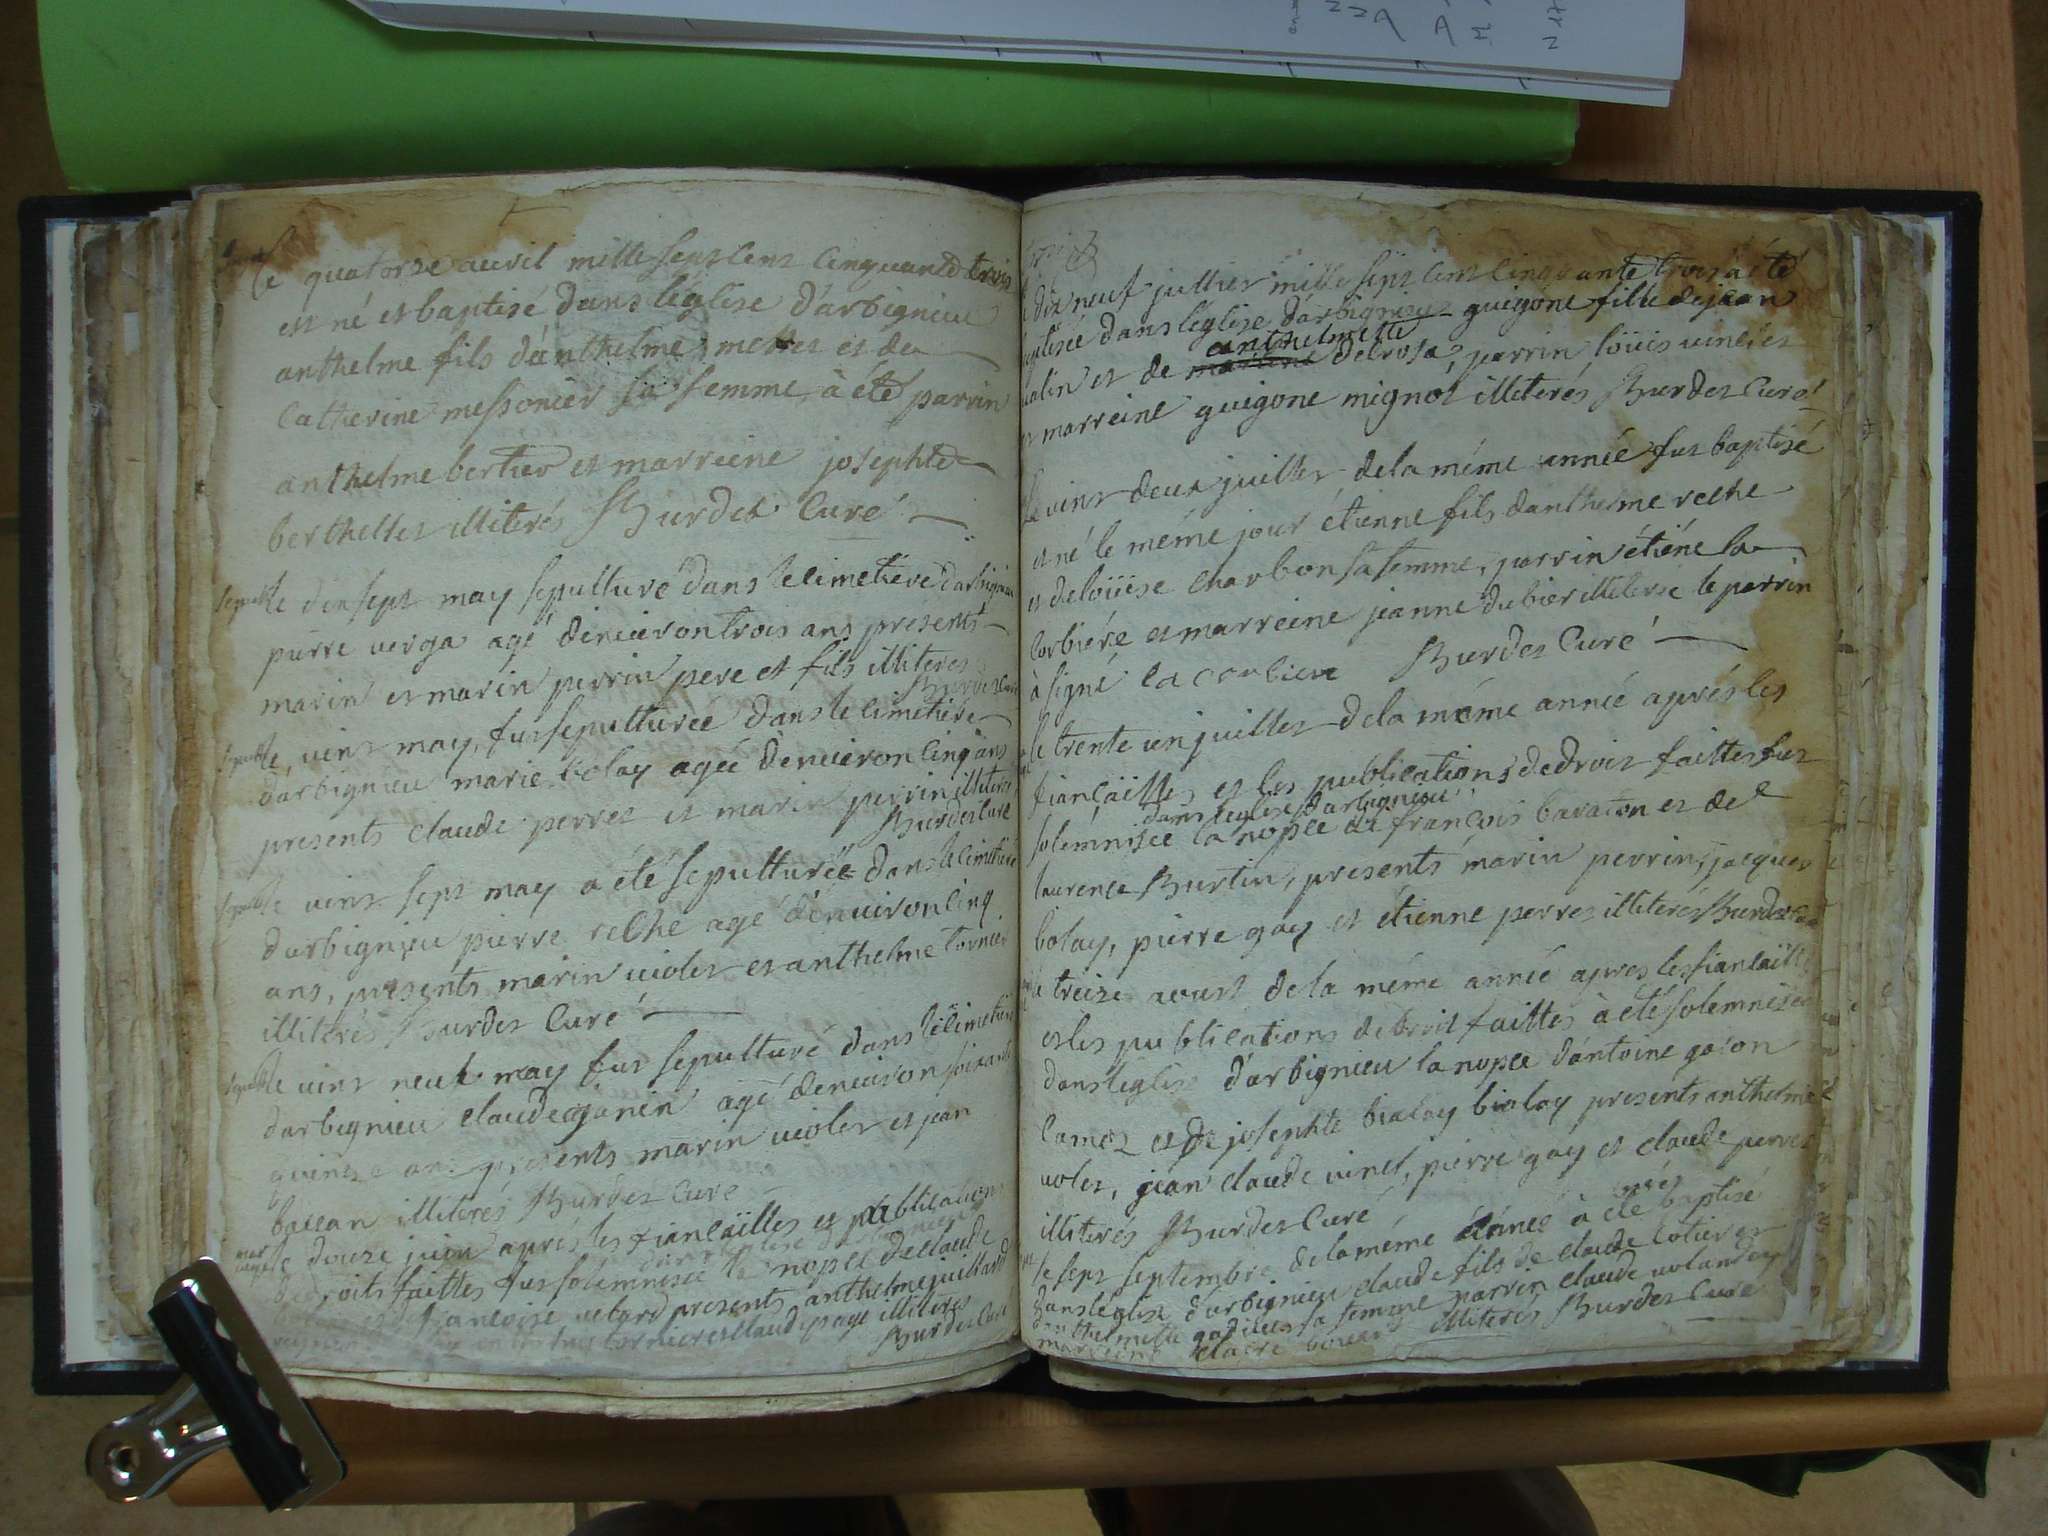 le quatorse auvril mille sept cent cinquante trois
est né et baptisé dans l'église d'arbignieu
anthelme fils d'anthelme mettez et de
catherine messonier sa femme, à été parrin
anthelme bertier et marreine josephte
berthellet illiterés Burdet Curé
sepult le dixsept may sepulturé dans le cimetiere d'arbignieu
pierre verga agé d'enuiron trois ans presents
marin et marin perrin pere et fils illiteres
Burdet Curé
sepult le vint may, fut sepulturée dans le cimetiere
d'arbignieu marie bolay agée d'enuiron cinq ans
presents claude perret et marin perrin illiterés
Burdet Curé
sepult le vint sept may a été sepulturée dans le cimetiere
d'arbignieu pierre reche agé d'enuiron cinq
ans, presents marin violet et anthelme tornier
illiterés Burdet Curé
sepult le vint neuf may fut sepulturé dans le cimetiere
d'arbignieu claude janin agé d'enuiron soixante
quinse ans presents marin violet et jean
balean illiterés Burdet Curé
mariage le douze juin aprés les fiancailles et publications
de droits faittes fut solemnisée la nopce de claude
et de francoise vetard presents anthelme juillard
tornier et claude page illiteres
Burdet Curé
dix neuf juillet mille sept cent cinquante trois a été
baptisée dans l'église d'arbignieu guigone fille de jean
anthelmette
et de delrosa, parrin loüis vinet, et
et marreine guigone mignot illiterés Burdet Curé
le vint deux juillet de la méme année fut baptisé
et né le méme jour étienne fils d'anthelme reche
et de loüise charbon sa femme, parrin étiéne la
corbiére et marreine jeanne dubier illiterée le parrin
à signé la corbiere Burdet Curé
le trente un juillet de la méme année aprés les
fiancäilles et les publications de droit faittes fut
dans l'église d'arbignieu
solemnisée la nopce de francois baraton et de
laurence Burtin, presents marin perrin, jacques
bolay, pierre gay et étienne perret illiterés Burdet Curé
le treize aoust de la méme année apres les fiancäilles
et les publications de droit faittes à été solemnisée
dans l'eglise d'arbignieu la nopce d'antoine goion
camet et de josephte bialay bialay presents anthelme
volet, jean claude vinet, pierre gay et claude perret
illiterés Burdet Curé
le sept septembre de la méme année à été baptisé
dans l'eglise d'arbignieu claude fils de claude cotier et
d'anthelmette sa femme parrin claude volandey
marreine claire illiterés Burdet Curé